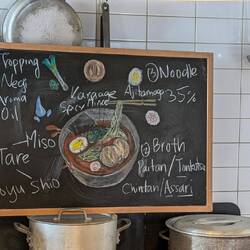 Topping
Negi
Aroma
Oil
Karaage
Spicy Mince
Ajitamago
③ Noodle
35%
Miso
Tare
Shio
② Broth
Paitan/Tonkotsu
Chintan/Assari